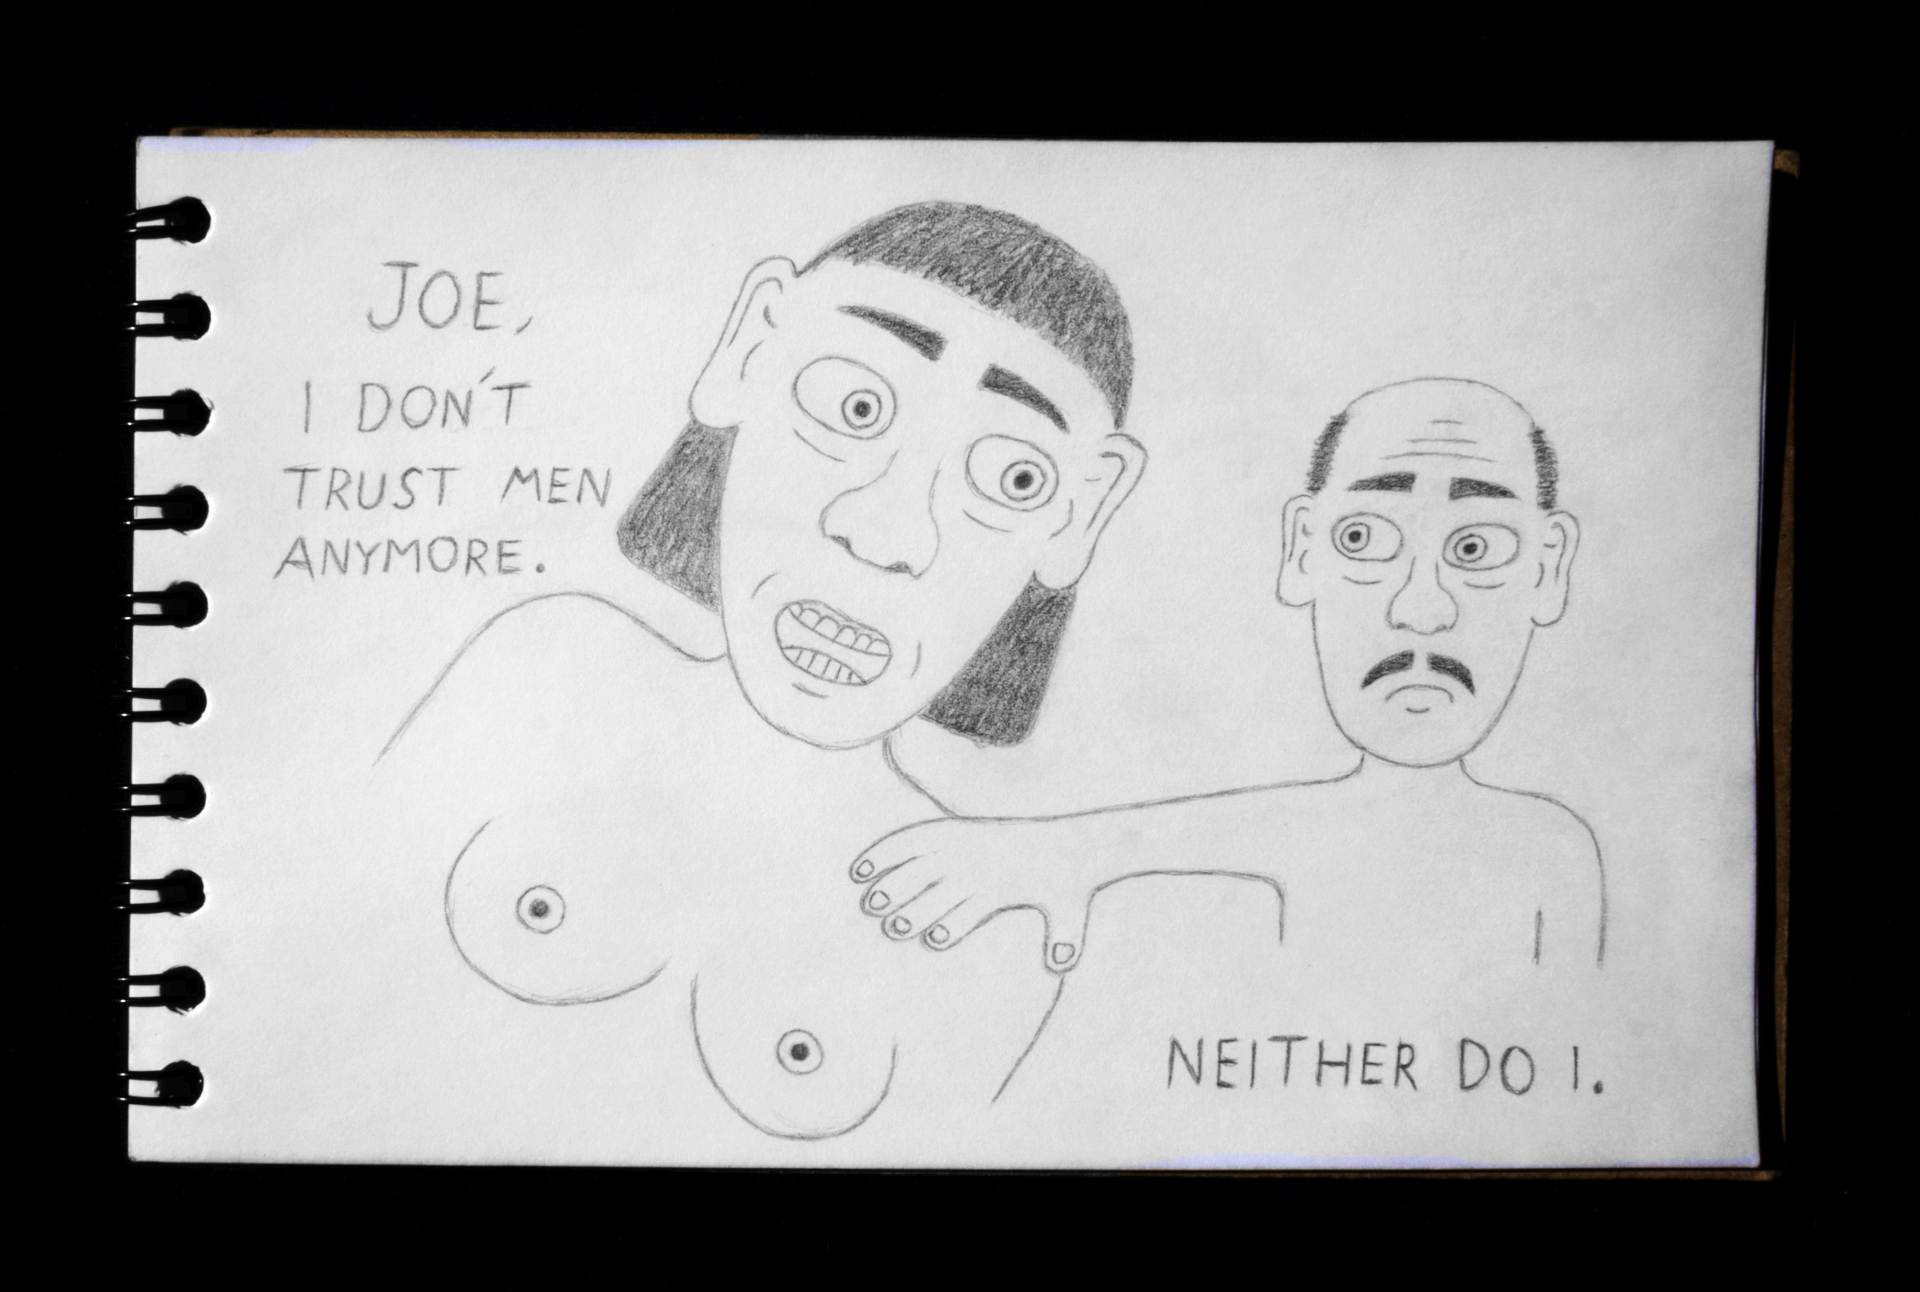 JOE,
I DON'T
TRUST MEN
ANYMORE.
NEITHER DO I.